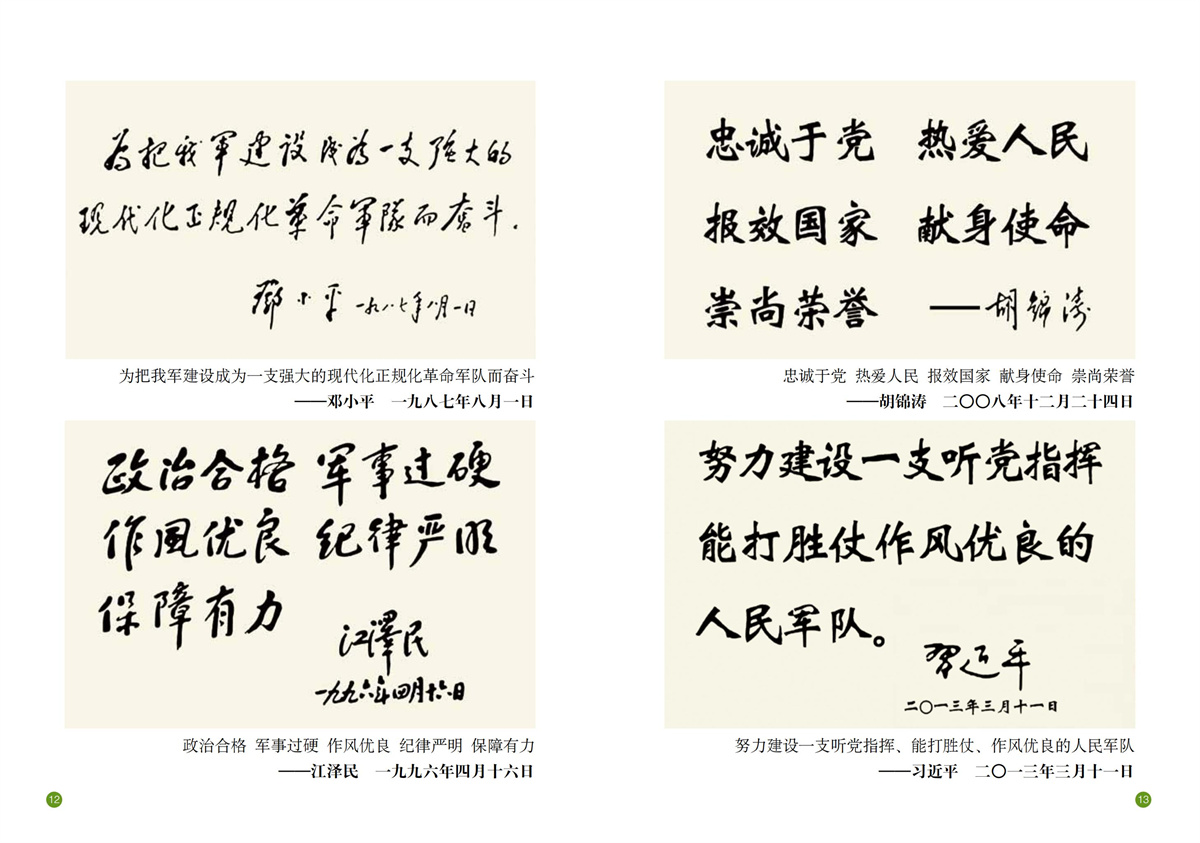 为把我军建设成为一支强大的
现代化正规化革命军队而奋斗.
邓小平 一九八七年八月一日
为把我军建设成为一支强大的现代化正规化革命军队而奋斗
——邓小平 一九八七年八月一日
政治合格 军事过硬
作风优良 纪律严明
保障有力
江泽民
一九九六年四月十六日
政治合格 军事过硬 作风优良 纪律严明 保障有力
——江泽民 一九九六年四月十六日
12
忠诚于党 热爱人民
报效国家 献身使命
崇尚荣誉 ——胡锦涛
忠诚于党 热爱人民 报效国家 献身使命 崇尚荣誉
——胡锦涛 二〇〇八年十二月二十四日
努力建设一支听党指挥
能打胜仗作风优良的
人民军队。
习近平
二〇一三年三月十一日
努力建设一支听党指挥、能打胜仗、作风优良的人民军队
——习近平 二〇一三年三月十一日
13